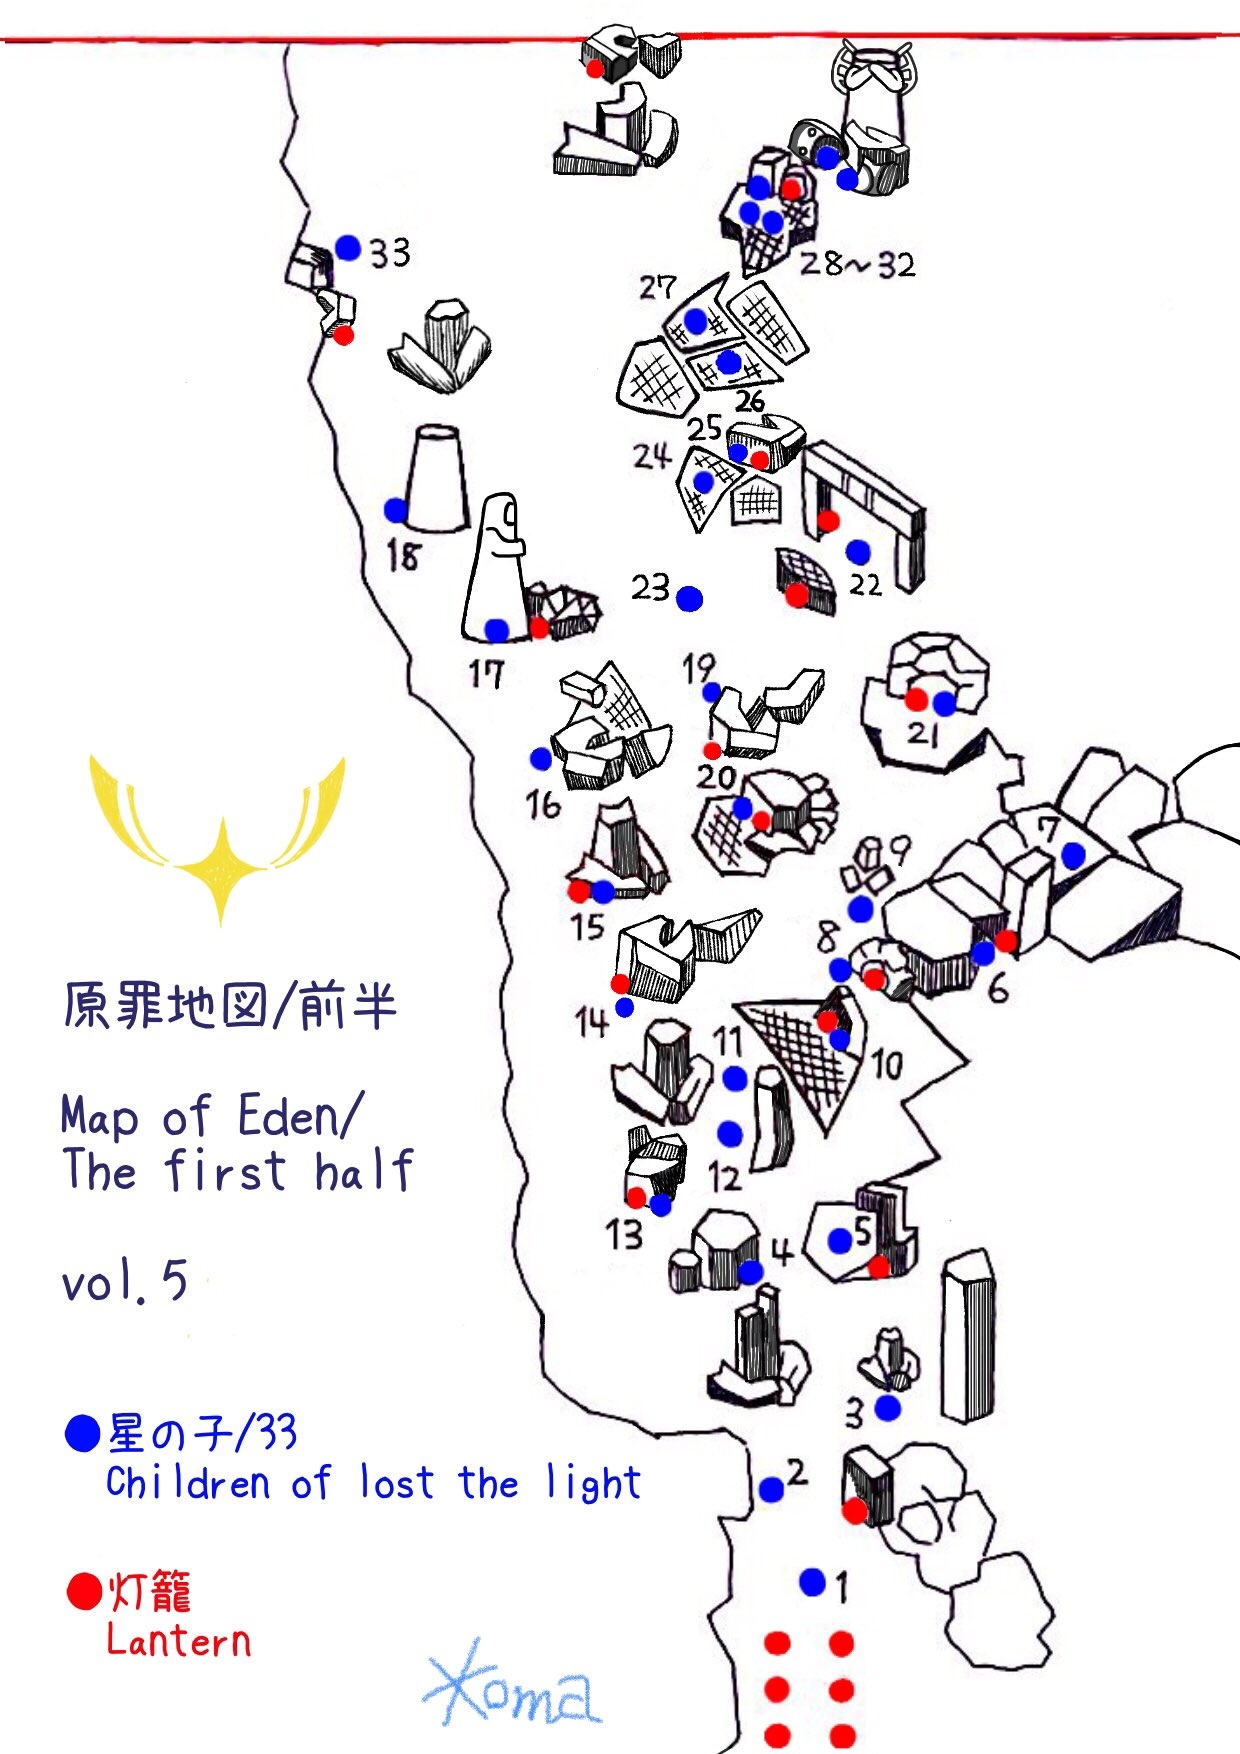 33
28~32
27
26
25
24
18
22
23
17
19
21
20
16
7
9
15
8
6
14
11
10
12
13
4
5
3
2
1
原罪地図/前半
Map of Eden/
The first half
vol.5
星の子/33
Children of lost the light
灯籠
Lantern
Koma